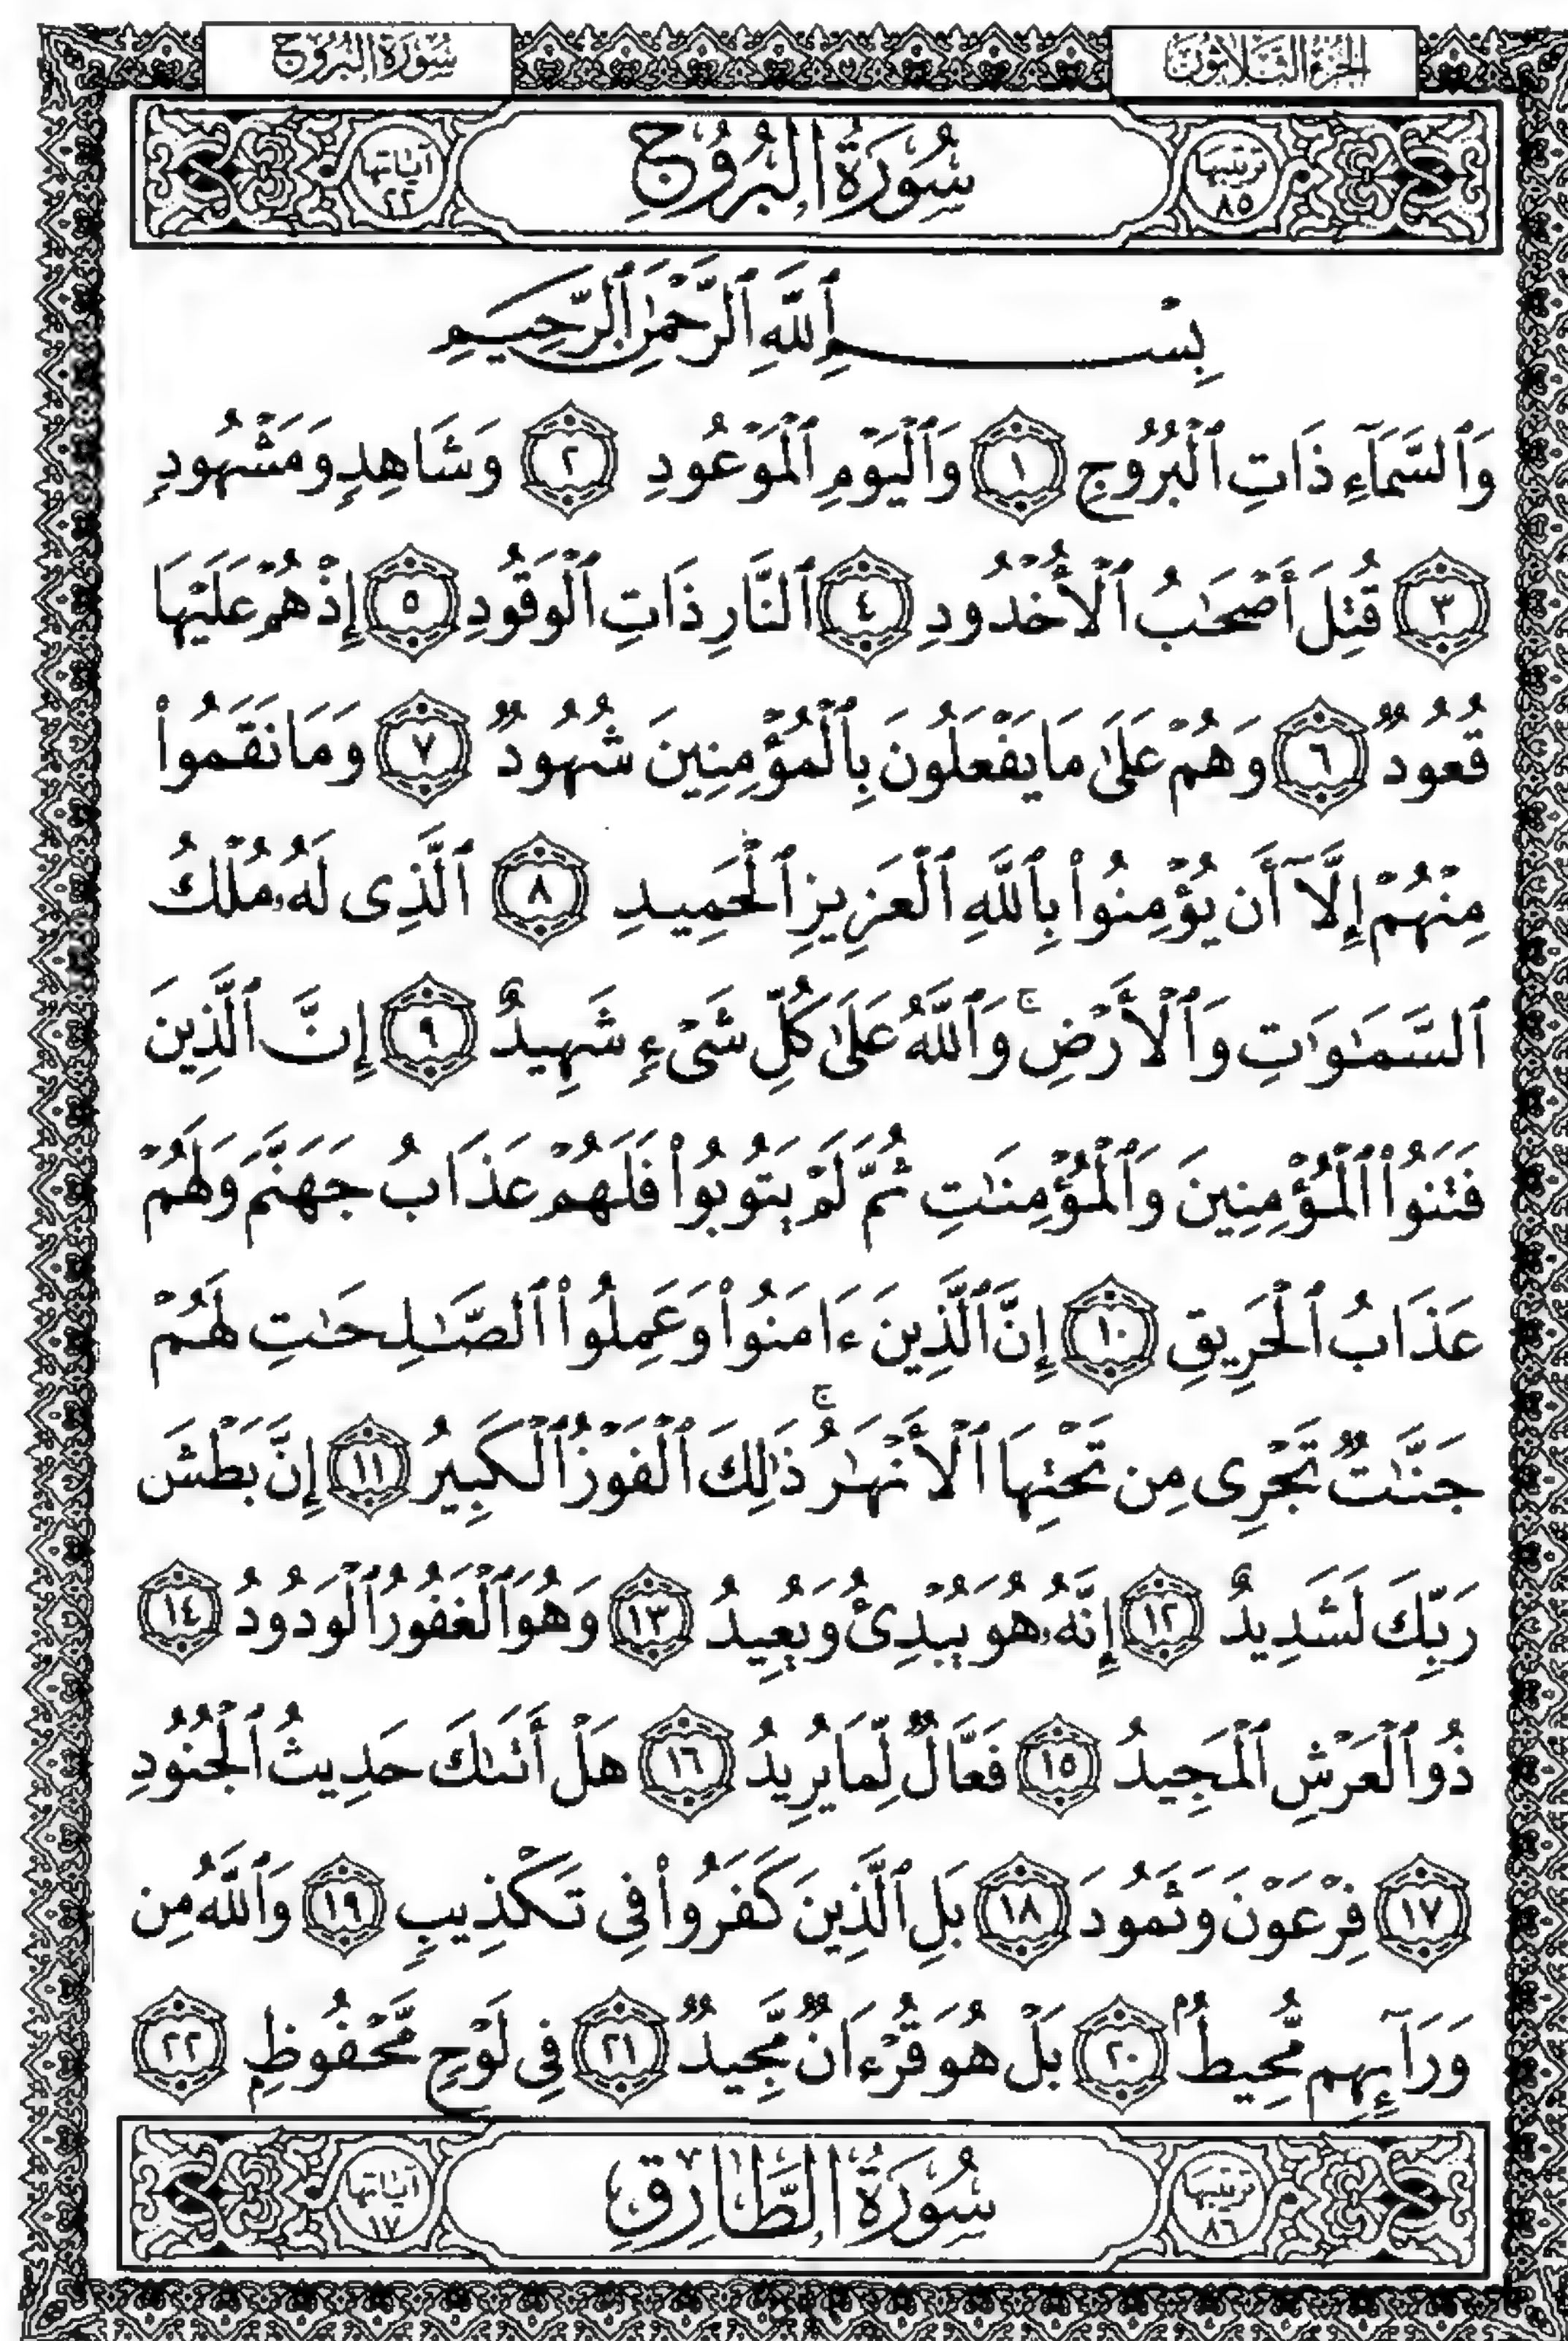 الجزء الثلاثون
سورة البروج
ترتيبها
٨٥
سُورَةُ البُرُوجِ
آياتها
٢٢
بِسْمِ ٱللَّهِ ٱلرَّحْمَٰنِ ٱلرَّحِيمِ
وَٱلسَّمَآءِ ذَاتِ ٱلْبُرُوجِ ١ وَٱلْيَوْمِ ٱلْمَوْعُودِ ٢ وَشَاهِدٍ وَمَشْهُودٍ
٣ قُتِلَ أَصْحَٰبُ ٱلْأُخْدُودِ ٤ ٱلنَّارِ ذَاتِ ٱلْوَقُودِ ٥ إِذْ هُمْ عَلَيْهَا
قُعُودٌ ٦ وَهُمْ عَلَىٰ مَا يَفْعَلُونَ بِٱلْمُؤْمِنِينَ شُهُودٌ ٧ وَمَا نَقَمُوا۟
مِنْهُمْ إِلَّآ أَن يُؤْمِنُوا۟ بِٱللَّهِ ٱلْعَزِيزِ ٱلْحَمِيدِ ٨ ٱلَّذِى لَهُۥ مُلْكُ
ٱلسَّمَٰوَٰتِ وَٱلْأَرْضِ ۚ وَٱللَّهُ عَلَىٰ كُلِّ شَىْءٍ شَهِيدٌ ٩ إِنَّ ٱلَّذِينَ
فَتَنُوا۟ ٱلْمُؤْمِنِينَ وَٱلْمُؤْمِنَٰتِ ثُمَّ لَمْ يَتُوبُوا۟ فَلَهُمْ عَذَابُ جَهَنَّمَ وَلَهُمْ
عَذَابُ ٱلْحَرِيقِ ١٠ إِنَّ ٱلَّذِينَ ءَامَنُوا۟ وَعَمِلُوا۟ ٱلصَّٰلِحَٰتِ لَهُمْ
جَنَّٰتٌ تَجْرِى مِن تَحْتِهَا ٱلْأَنْهَٰرُ ۚ ذَٰلِكَ ٱلْفَوْزُ ٱلْكَبِيرُ ١١ إِنَّ بَطْشَ
رَبِّكَ لَشَدِيدٌ ١٢ إِنَّهُۥ هُوَ يُبْدِئُ وَيُعِيدُ ١٣ وَهُوَ ٱلْغَفُورُ ٱلْوَدُودُ ١٤
ذُو ٱلْعَرْشِ ٱلْمَجِيدُ ١٥ فَعَّالٌ لِّمَا يُرِيدُ ١٦ هَلْ أَتَىٰكَ حَدِيثُ ٱلْجُنُودِ
١٧ فِرْعَوْنَ وَثَمُودَ ١٨ بَلِ ٱلَّذِينَ كَفَرُوا۟ فِى تَكْذِيبٍ ١٩ وَٱللَّهُ مِن
وَرَآئِهِم مُّحِيطٌۢ ٢٠ بَلْ هُوَ قُرْءَانٌ مَّجِيدٌ ٢١ فِى لَوْحٍ مَّحْفُوظٍۭ ٢٢
ترتيبها
٨٦
سُورَةُ الطَّارِقِ
آياتها
١٧